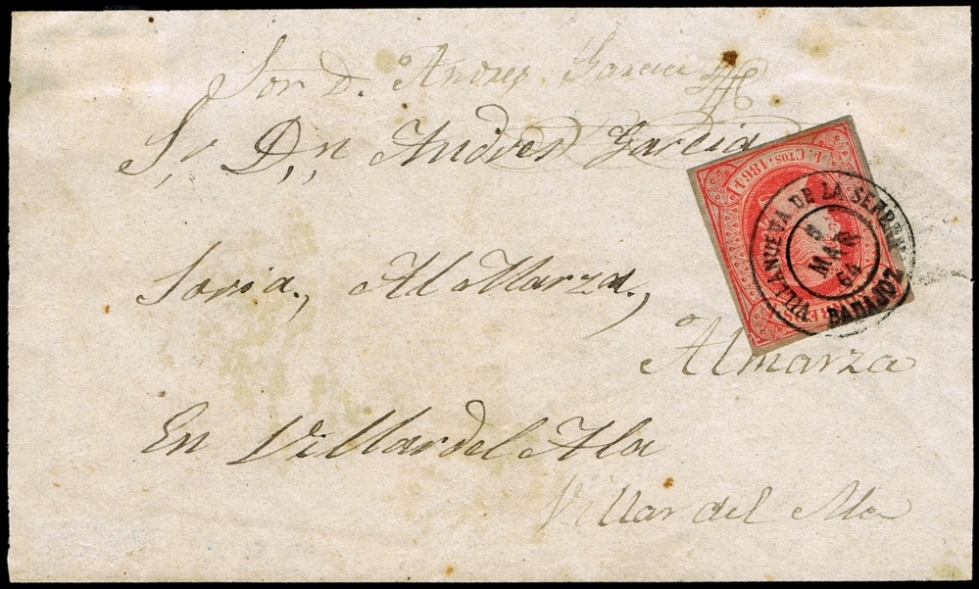 Sor D. Andres Garcia
Sr Dn Andres Garcia
Soria., Al Marza.,
Almarza
En Villar del Ala
Villar del Ala
L. CTOS. 1864
CORREOS
VILLANUEVA DE LA SEREN
5
MAR
64
BADAJOZ